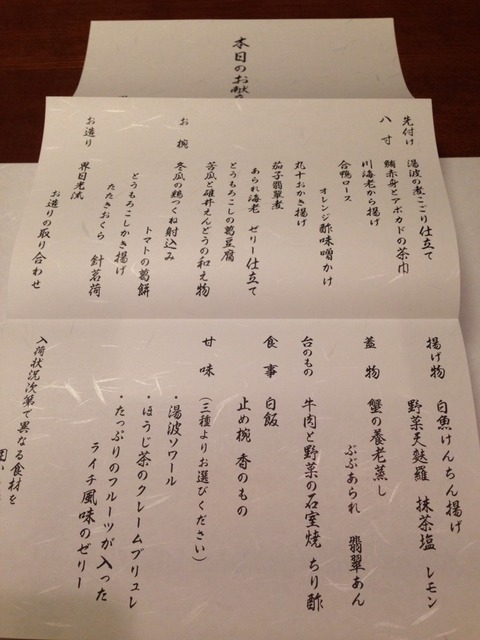 本日のお献
先付け 湯波の煮こごり仕立て
八寸 鮪赤身とアボカドの茶巾
川海老から揚げ
合鴨ロース
オレンジ酢味噌かけ
丸十おかき揚げ
茄子翡翠煮
あられ海老 ゼリー仕立て
とうもろこしの葛豆腐
苦瓜と碓井えんどうの和え物
お椀 冬瓜の鶏つくね射込み
トマトの葛餅
とうもろこしかき揚げ
たたきおくら 針茗荷
お造り 界日光流
お造りの取り合わせ
揚げ物 白魚けんちん揚げ
野菜天麩羅 抹茶塩 レモン
蓋物 蟹の養老蒸し
ぶぶあられ 翡翠あん
台のもの 牛肉と野菜の石室焼 ちり酢
食事 白飯
止め椀 香のもの
甘味 (三種よりお選びください)
・湯波ソワール
・ほうじ茶のクレームブリュレ
・たっぷりのフルーツが入った
ライチ風味のゼリー
入荷状況次第で異なる食材を